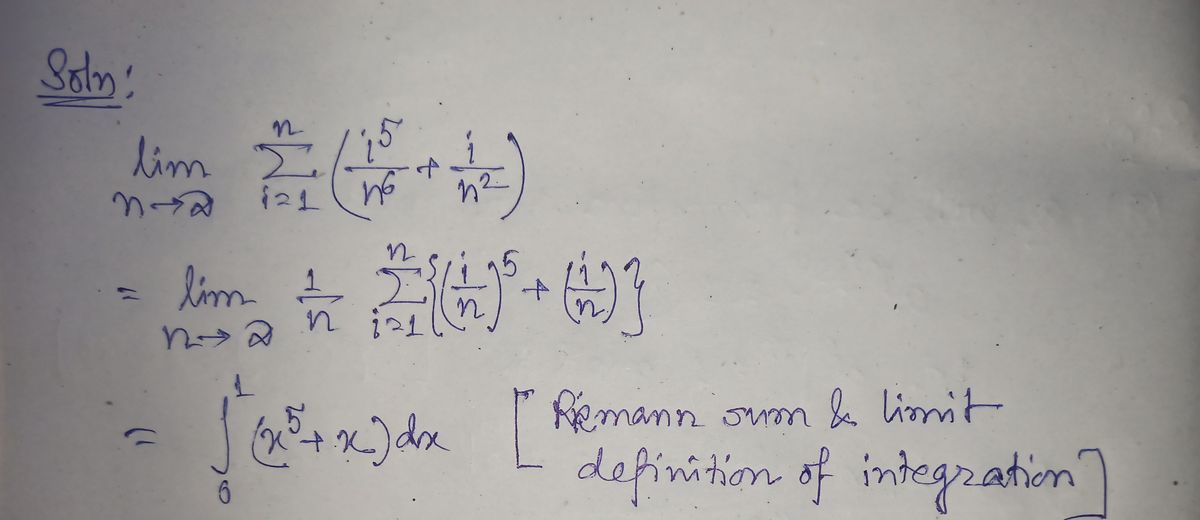 Soln:
lim n→∞ ∑ i=1 n (i^5/n^6 + i/n^2)
= lim n→∞ 1/n ∑ i=1 n {(i/n)^5 + (i/n)}
= ∫ 0 1 (x^5 + x) dx [Riemann sum & limit
definition of integration]